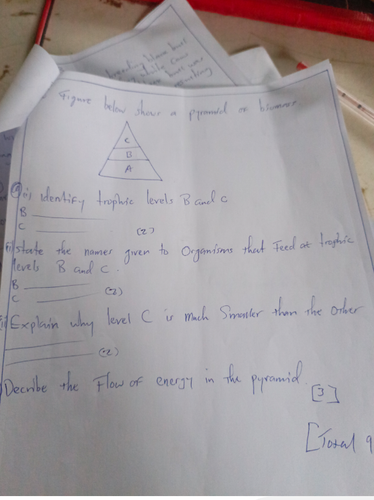 breeding
Figure below shows a pyramid of biomass
C
B
A
(a) i) identify trophic levels B and C
B
C
(2)
ii) State the names given to Organisms that Feed at trophic
levels B and C.
B
C
(2)
Explain why level C is much Smaller than the other
(2)
Decribe the Flow of energy in the pyramid.
[3]
[Total 9